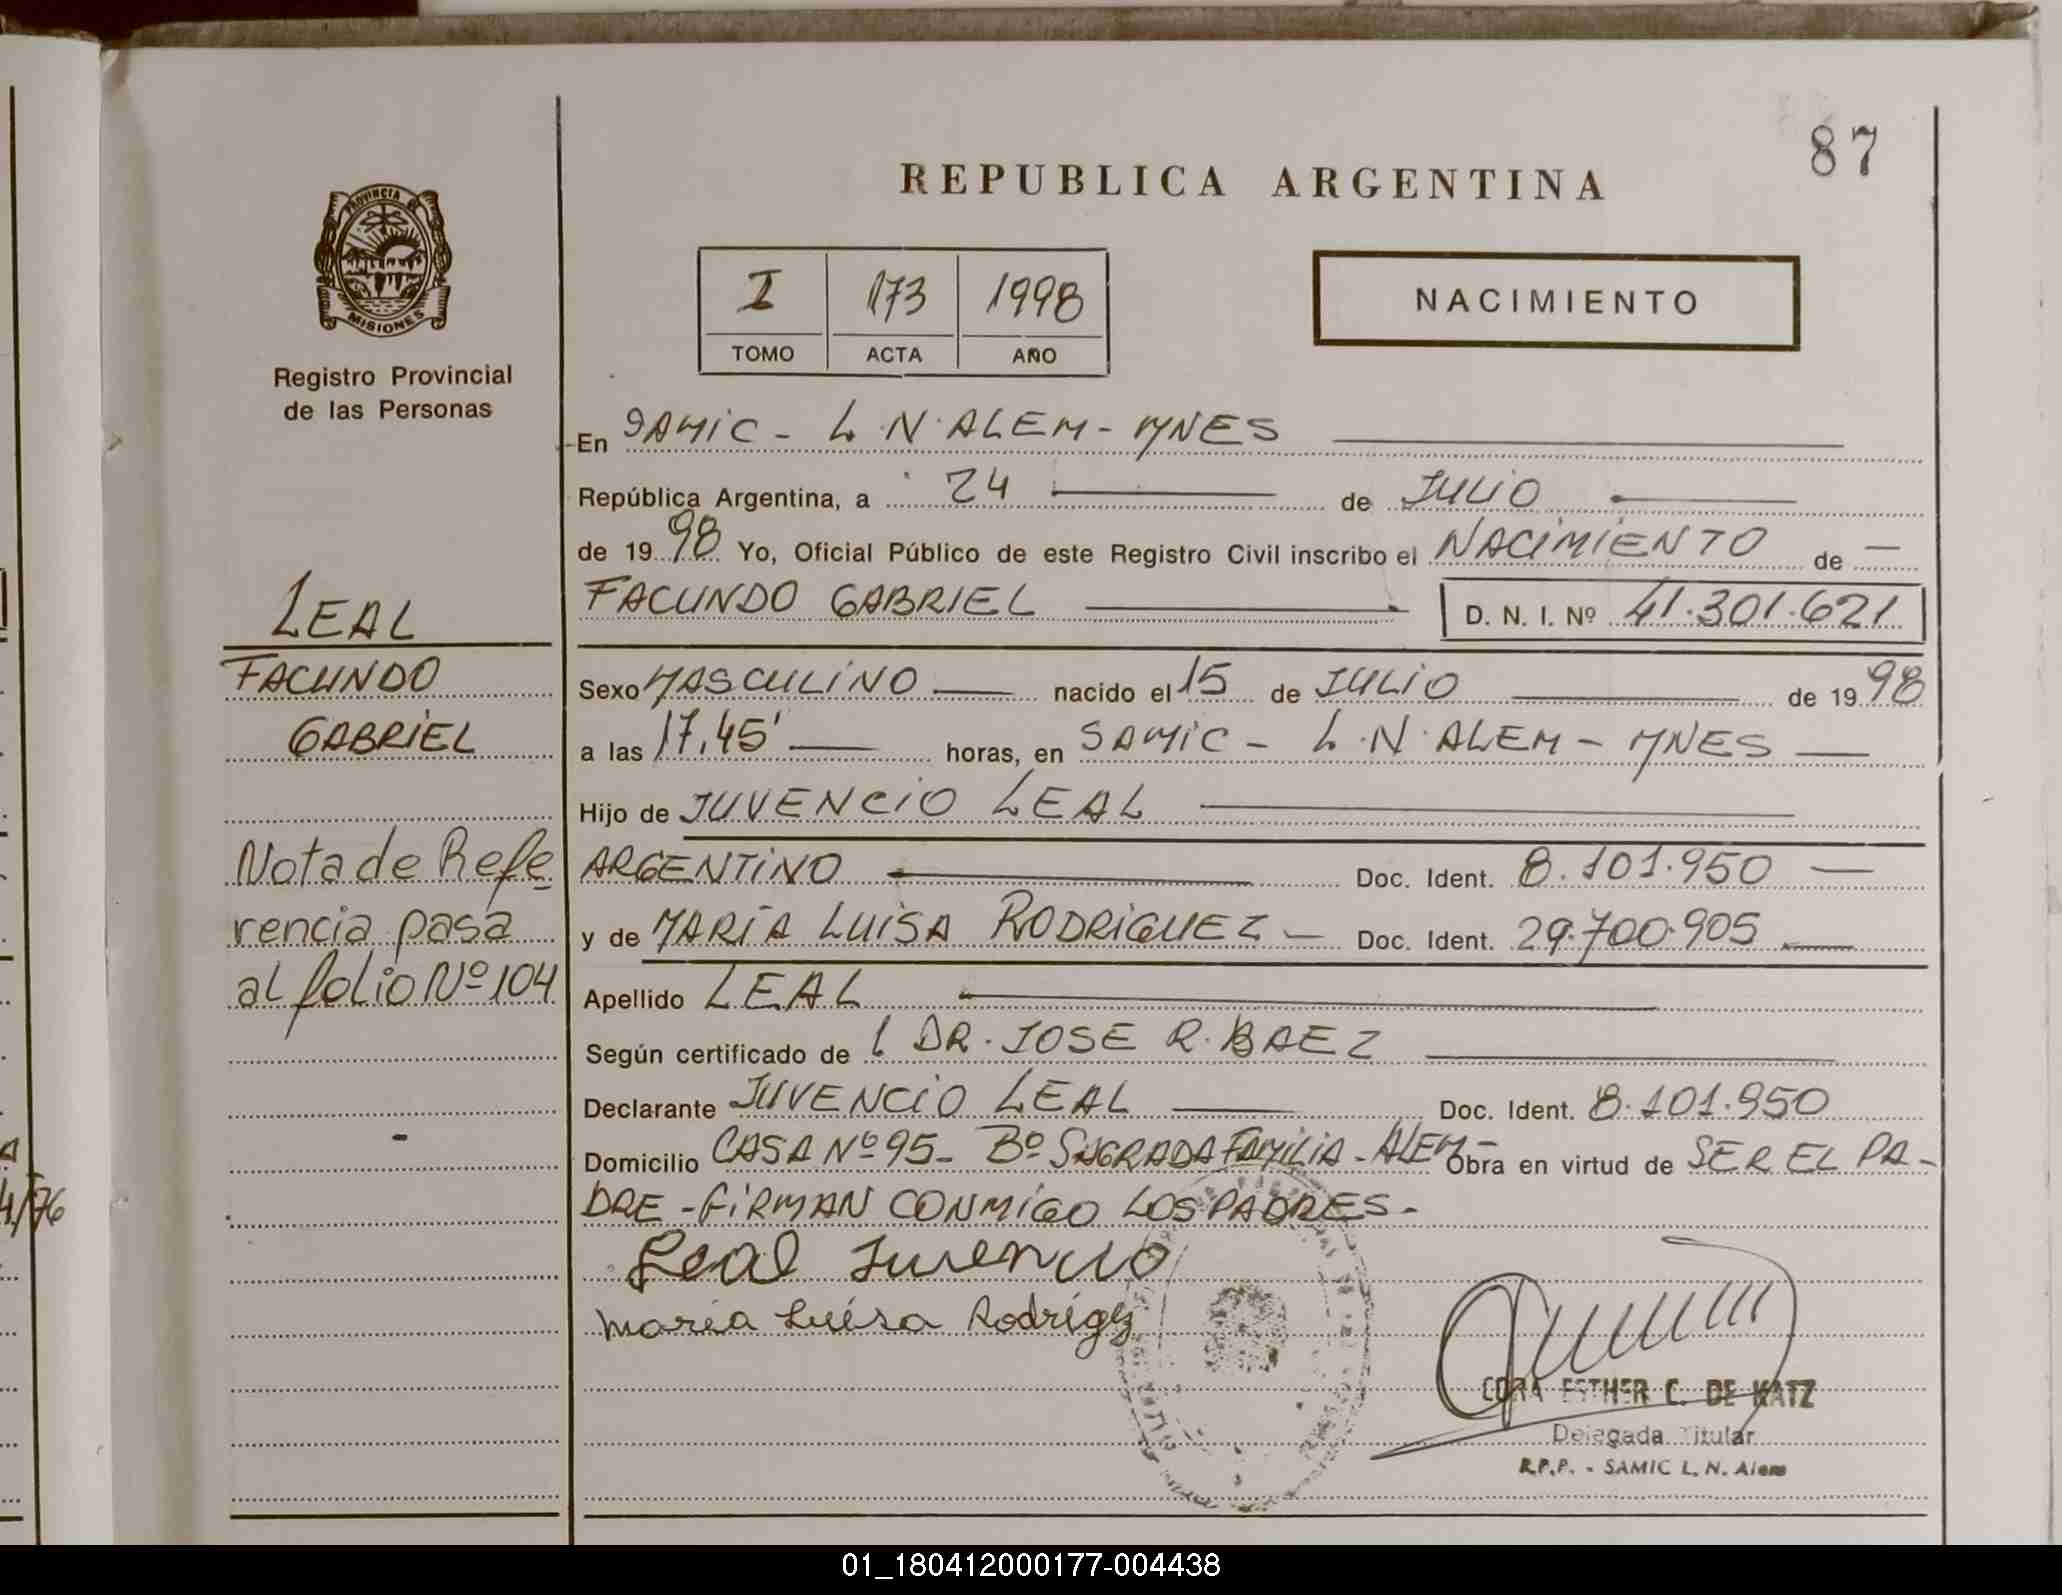 87
REPUBLICA ARGENTINA
PROVINCIA DE
MISIONES
Registro Provincial
de las Personas
I 173 1998
TOMO ACTA AÑO
NACIMIENTO
En SAMIC - L.N. ALEM - MNES
República Argentina, a 24 de JULIO
de 1998 Yo, Oficial Público de este Registro Civil inscribo el NACIMIENTO de
FACUNDO GABRIEL D. N. I. Nº 41.301.621
LEAL
FACUNDO
GABRIEL
Sexo MASCULINO nacido el 15 de JULIO de 1998
a las 17,45' horas, en SAMIC - L.N. ALEM - MNES
Hijo de JUVENCIO LEAL
Nota de Refe
rencia pasa
al folio Nº 104
ARGENTINO Doc. Ident. 8.101.950
y de MARÍA LUISA RODRIGUEZ Doc. Ident. 29.700.905
Apellido LEAL
Según certificado de l DR. JOSE R. BAEZ
Declarante JUVENCIO LEAL Doc. Ident. 8.101.950
Domicilio CASA Nº 95 - Bº SAGRADA FAMILIA - ALEM - Obra en virtud de SER EL PA-
DRE - FIRMAN CONMIGO LOS PADRES -
Leal Juvencio
maria Luisa Rodrigez
CORA ESTHER C. DE KATZ
Delegada Titular
R.P.P. - SAMIC L. N. Alem
4/76
01_180412000177-004438